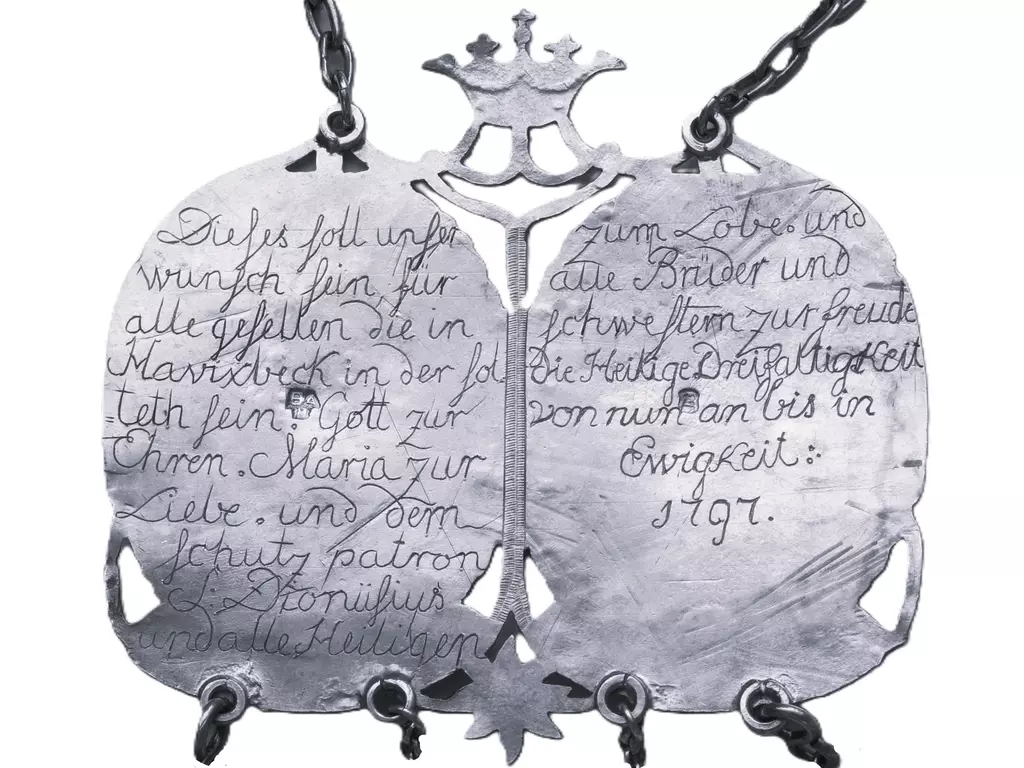 Dieses soll unser
wunsch sein, für
alle gesellen die in
Havixbeck in der sol
=teth sein. Gott zur
Ehren. Maria zur
Liebe. und dem
schutz patron
S. Dionüsius
und alle Heiligen
zum Lobe. und
alle Brüder und
schwestern zur freude
Die Heilige Dreifaltigkeit
von nun an bis in
Ewigkeit:.
1797.